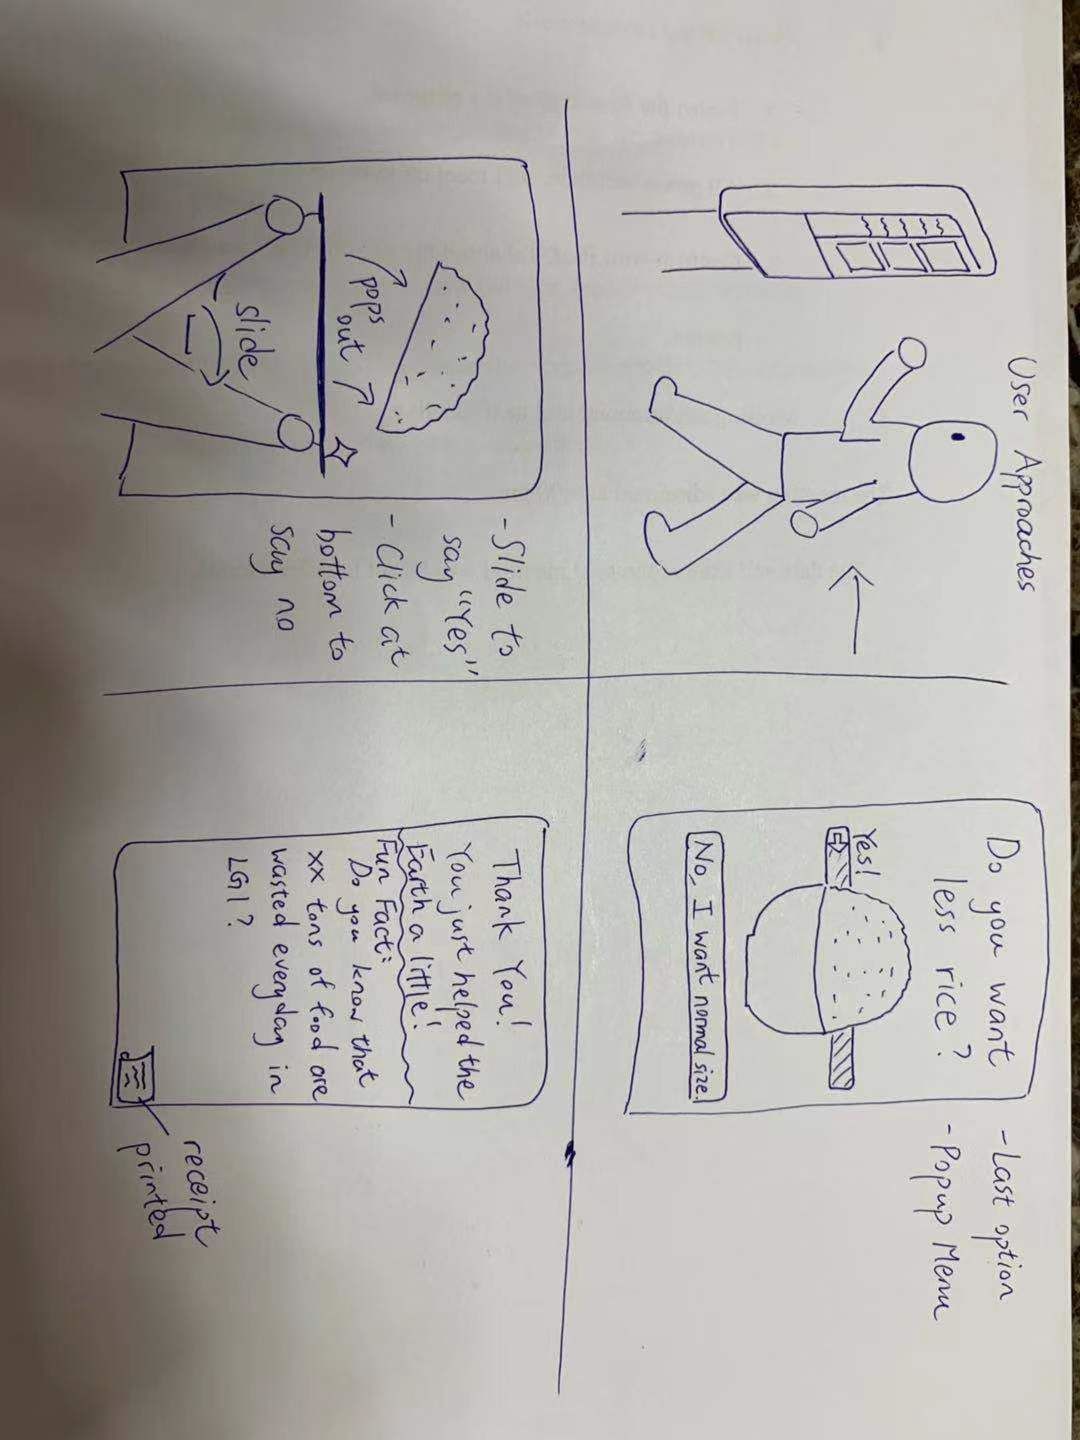 User Approaches
Do you want
less rice?
Yes!
No, I want normal size.
- Last option
- Popup Menu
pops
out
slide
- Slide to
say "Yes"
- Click at
bottom to
say no
Thank You!
You just helped the
Earth a little!
Fun Fact:
Do you know that
xx tons of food are
wasted everyday in
LG1?
receipt
printed